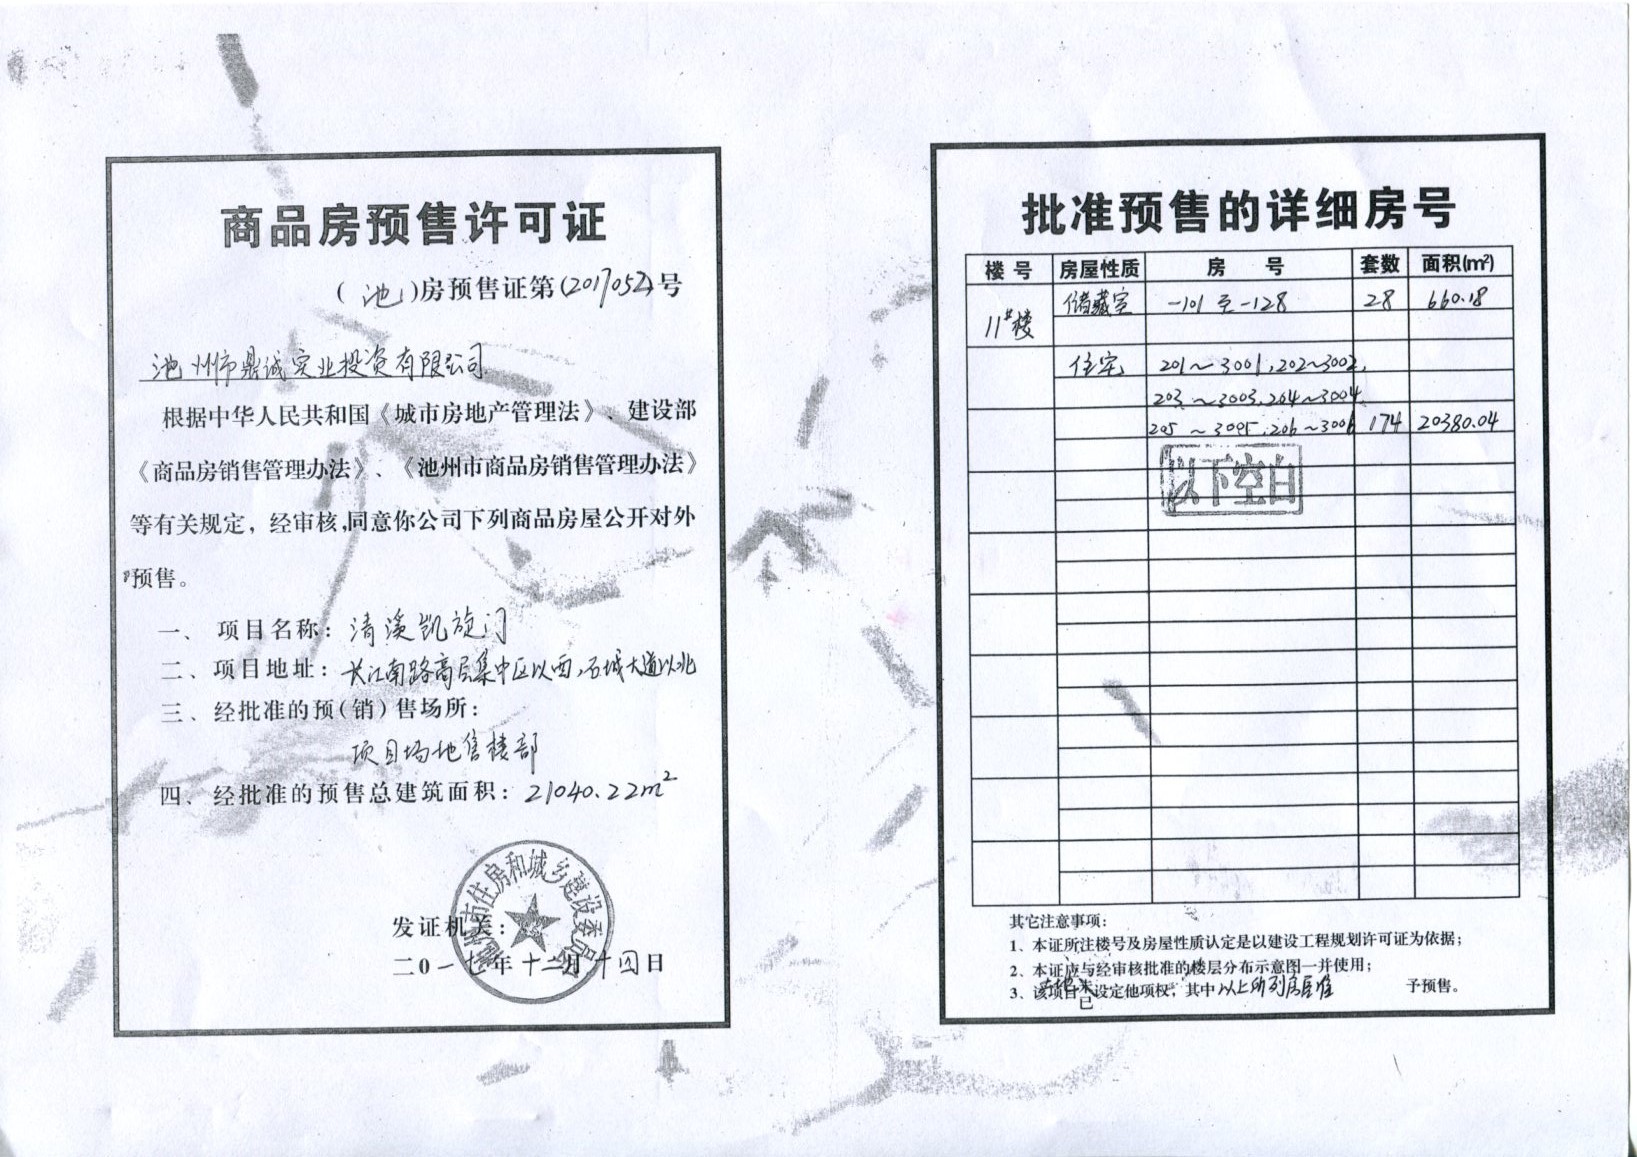 商品房预售许可证
(池)房预售证第(2017052)号
池州市鼎诚实业投资有限公司
根据中华人民共和国《城市房地产管理法》、建设部
《商品房销售管理办法》、《池州市商品房销售管理办法》
等有关规定，经审核,同意你公司下列商品房屋公开对外
预售。
一、项目名称：清溪凯旋门
二、项目地址：长江南路高层集中区以西,石城大道以北
三、经批准的预(销)售场所：
项目场地售楼部
四、经批准的预售总建筑面积：21040.22m²
市住房和城乡建设委员
发证机关：
二0一七年十二月十四日
批准预售的详细房号
楼号 房屋性质 房号 套数 面积(m²)
11#楼 储藏室 -101至-128 28 660.18
住宅 201～3001,202～3002,
203～3003,204～3004,
205～3005,206～3006 174 20380.04
以下空白
其它注意事项：
1、本证所注楼号及房屋性质认定是以建设工程规划许可证为依据；
2、本证应与经审核批准的楼层分布示意图一并使用；
3、该项目未已设定他项权，其中以上所列房屋准予预售。